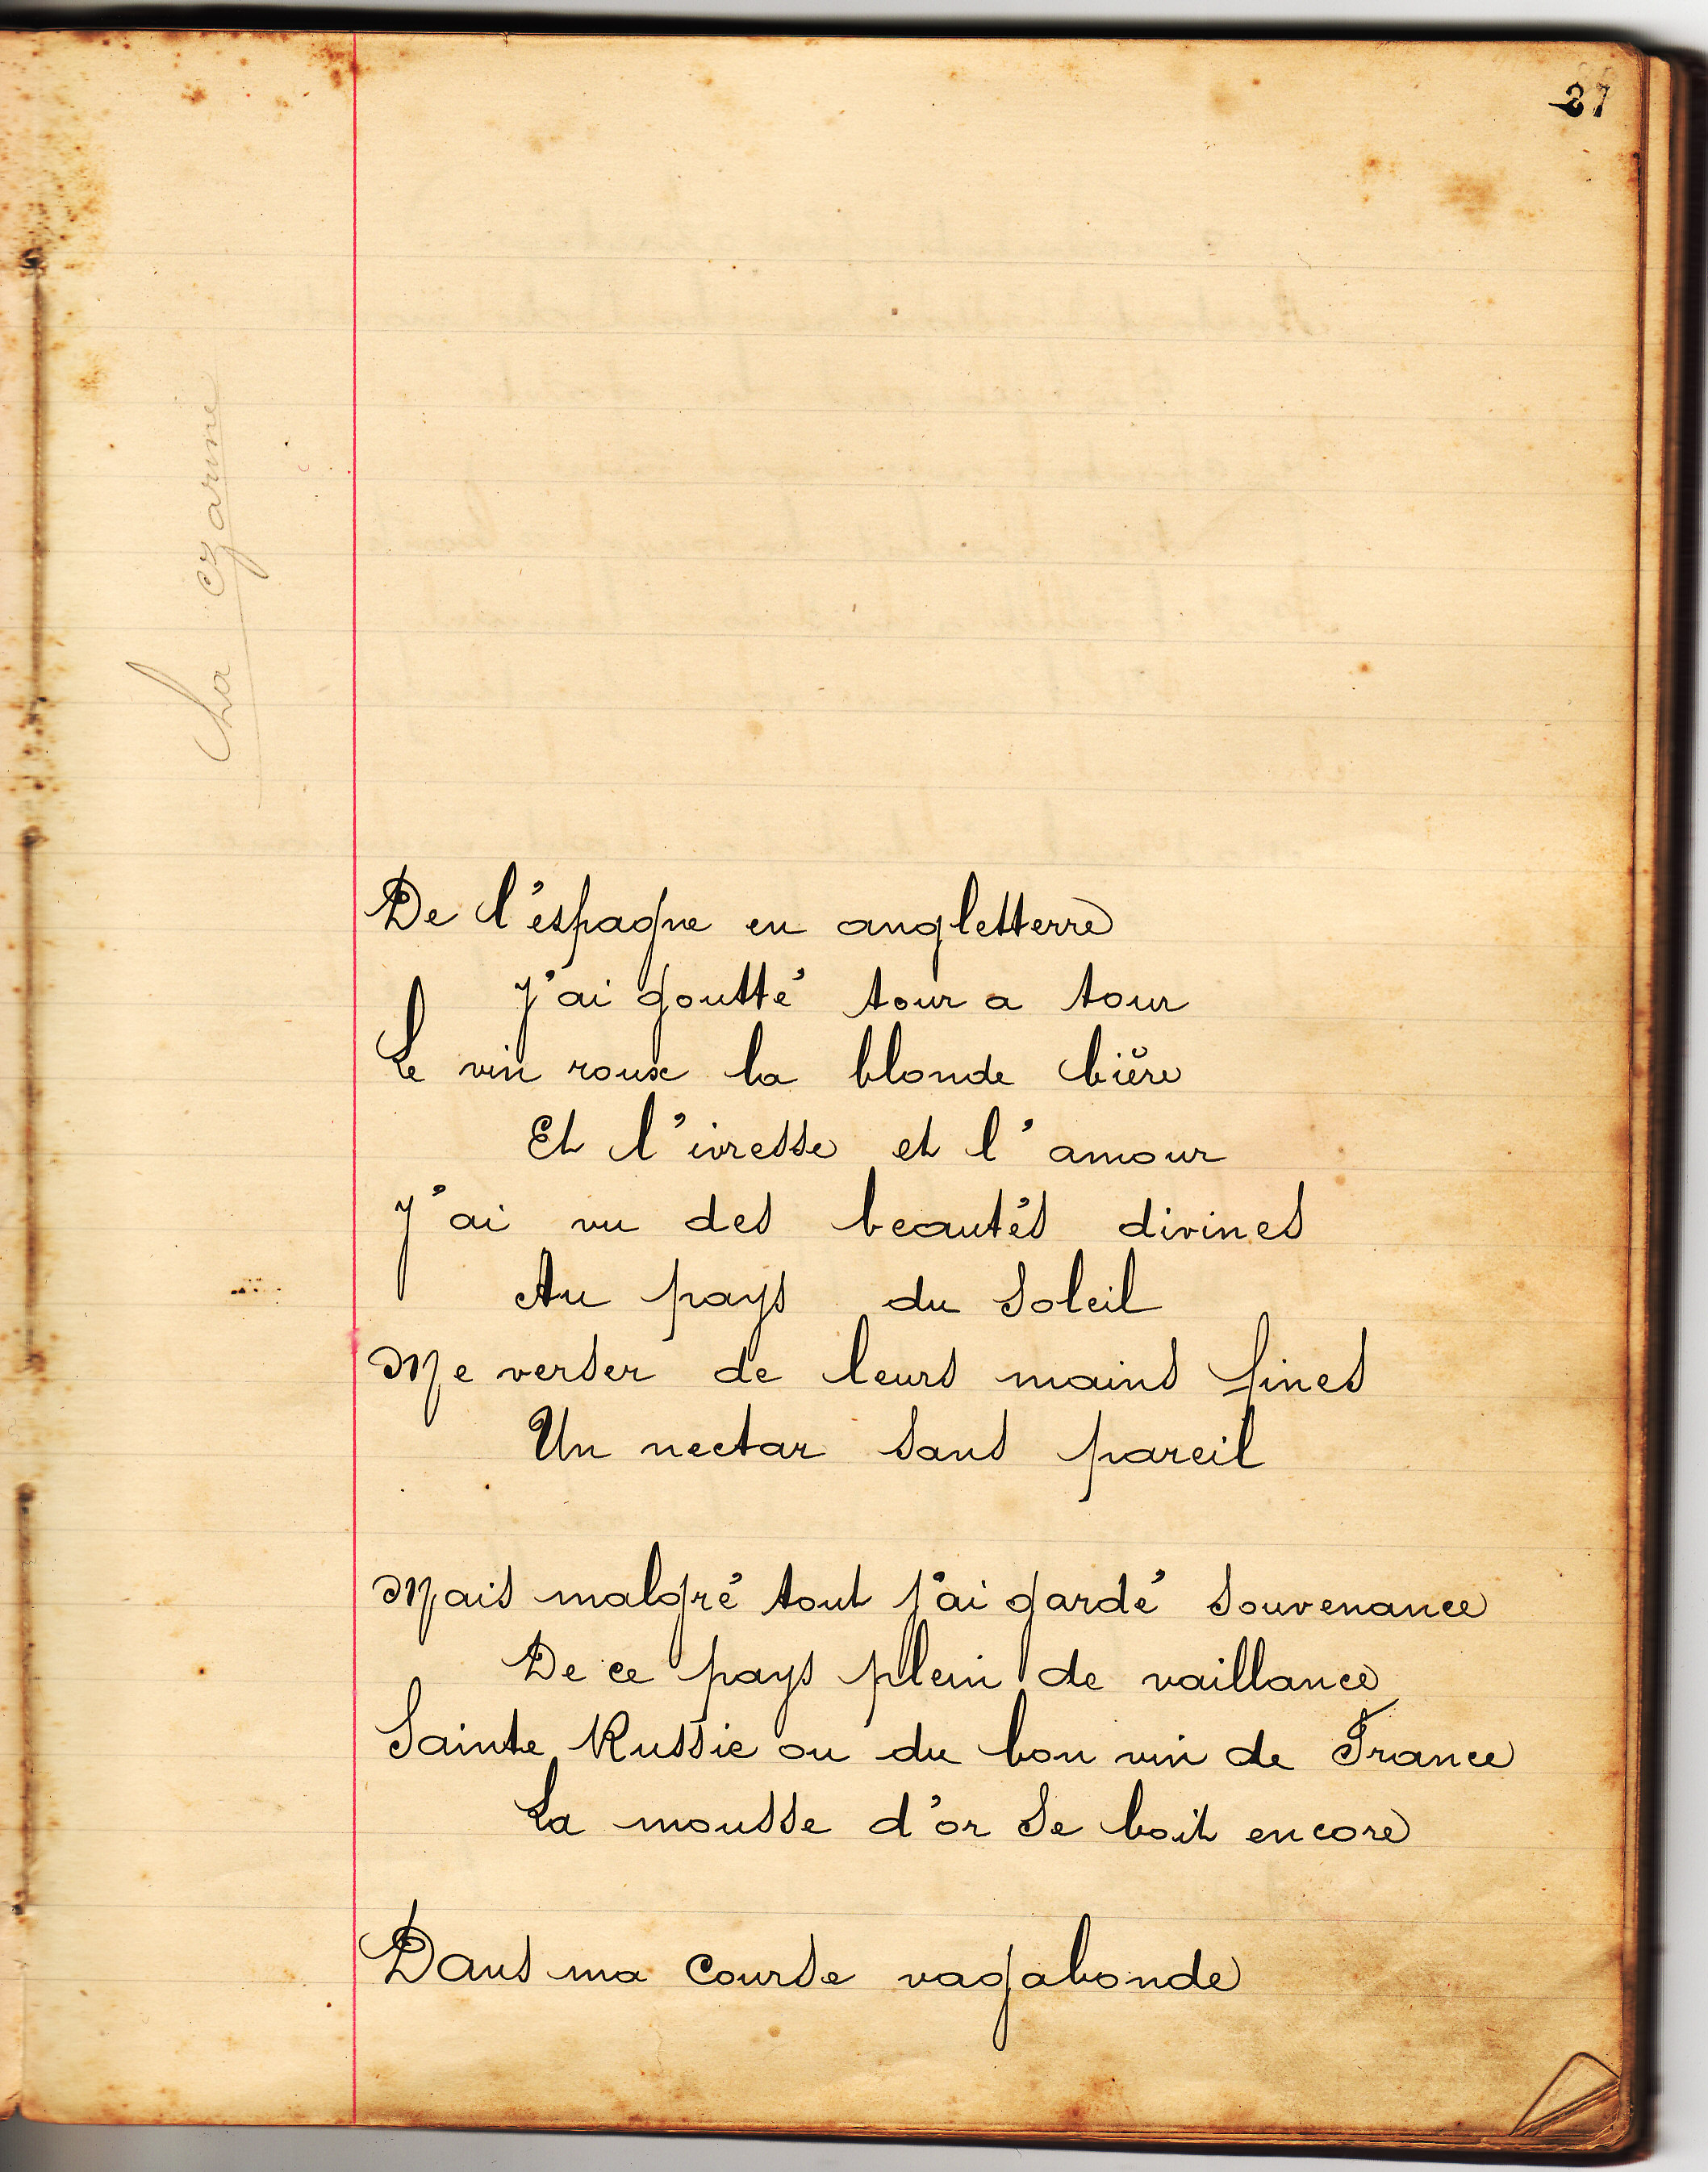 27
La czarine
De l'espagne en angletterre
J'ai goutté tour a tour
Le vin roux la blonde bière
Et l'ivresse et l'amour
J'ai vu des beautés divines
Au pays du soleil
Me verser de leurs mains fines
Un nectar sans pareil
Mais malgré tout j'ai gardé souvenance
De ce pays plein de vaillance
Sainte Russie ou du bon vin de France
La mousse d'or se boit encore
Dans ma course vagabonde